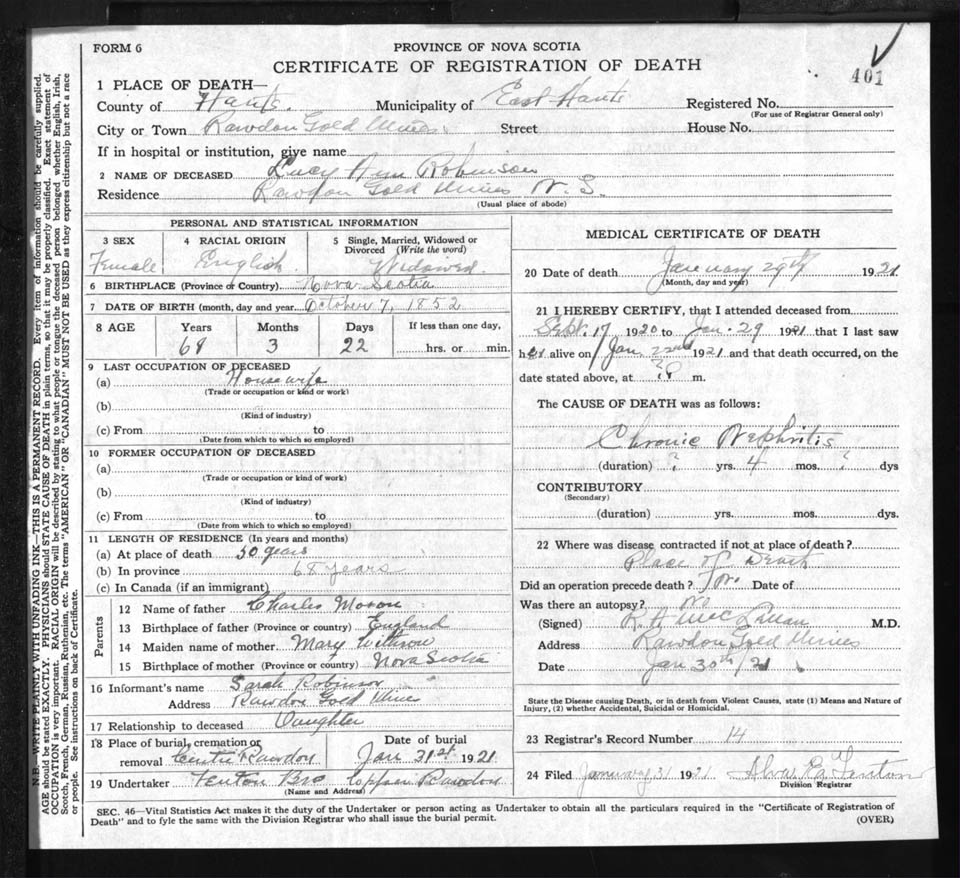 FORM 6
PROVINCE OF NOVA SCOTIA
CERTIFICATE OF REGISTRATION OF DEATH
401
1 PLACE OF DEATH—
County of Hants. Municipality of East Hants Registered No.
(For use of Registrar General only)
City or Town Rawdon Gold Mines Street House No.
If in hospital or institution, give name
2 NAME OF DECEASED Lucy Ann Robinson
Residence Rawdon Gold Mines N. S.
(Usual place of abode)
PERSONAL AND STATISTICAL INFORMATION
3 SEX 4 RACIAL ORIGIN 5 Single, Married, Widowed or
Divorced (Write the word)
Female English Widowed.
6 BIRTHPLACE (Province or Country) Nova Scotia
7 DATE OF BIRTH (month, day and year) October 7, 1852
8 AGE Years Months Days If less than one day,
68 3 22 hrs. or min.
9 LAST OCCUPATION OF DECEASED
(a) Housewife
(Trade or occupation or kind of work)
(b)
(Kind of industry)
(c) From to
(Date from which to which so employed)
10 FORMER OCCUPATION OF DECEASED
(a)
(Trade or occupation or kind of work)
(b)
(Kind of industry)
(c) From to
(Date from which to which so employed)
11 LENGTH OF RESIDENCE (In years and months)
(a) At place of death 50 years
(b) In province 68 years
(c) In Canada (if an immigrant)
Parents
12 Name of father Charles
13 Birthplace of father (Province or country) England
14 Maiden name of mother Mary Withrow
15 Birthplace of mother (Province or country) Nova Scotia
16 Informant's name Sarah Robinson
Address Rawdon Gold Mine
17 Relationship to deceased Daughter
18 Place of burial, cremation or removal Centre Rawdon Date of burial Jan 31st. 1921
19 Undertaker Fenton Bro Rawdon
(Name and Address)
MEDICAL CERTIFICATE OF DEATH
20 Date of death January 29th 1921
(Month, day and year)
21 I HEREBY CERTIFY, that I attended deceased from
Sept. 17 1920 to Jan. 29 1921 that I last saw
her alive on Jan 22nd 1921 and that death occurred, on the
date stated above, at ? m.
The CAUSE OF DEATH was as follows:
Chronic Nephritis
(duration) ? yrs. 4 mos. ? dys
CONTRIBUTORY
(Secondary)
(duration) yrs. mos. dys.
22 Where was disease contracted if not at place of death?
Place of Death
Did an operation precede death? No. Date of
Was there an autopsy? No
(Signed) R. A. McLellan M.D.
Address Rawdon Gold Mines
Date Jan 30th/21
State the Disease causing Death, or in death from Violent Causes, state (1) Means and Nature of
Injury, (2) whether Accidental, Suicidal or Homicidal.
23 Registrar's Record Number 14
24 Filed January 31 1921 Fenton
Division Registrar
SEC. 46—Vital Statistics Act makes it the duty of the Undertaker or person acting as Undertaker to obtain all the particulars required in the "Certificate of Registration of
Death" and to fyle the same with the Division Registrar who shall issue the burial permit.
(OVER)
N.B.—WRITE PLAINLY WITH UNFADING INK—THIS IS A PERMANENT RECORD. Every item of information should be carefully supplied.
AGE should be stated EXACTLY. PHYSICIANS should STATE CAUSE OF DEATH in plain terms, so that it may be properly classified. Exact statement of
OCCUPATION is very important. RACIAL ORIGIN will be described by stating to what people or tongue the deceased person belonged whether English, Irish,
Scotch, French, German, Russian, Ruthenian, etc. The terms "AMERICAN" OR "CANADIAN" MUST NOT BE USED as they express citizenship but not a race
or people. See instructions on back of Certificate.